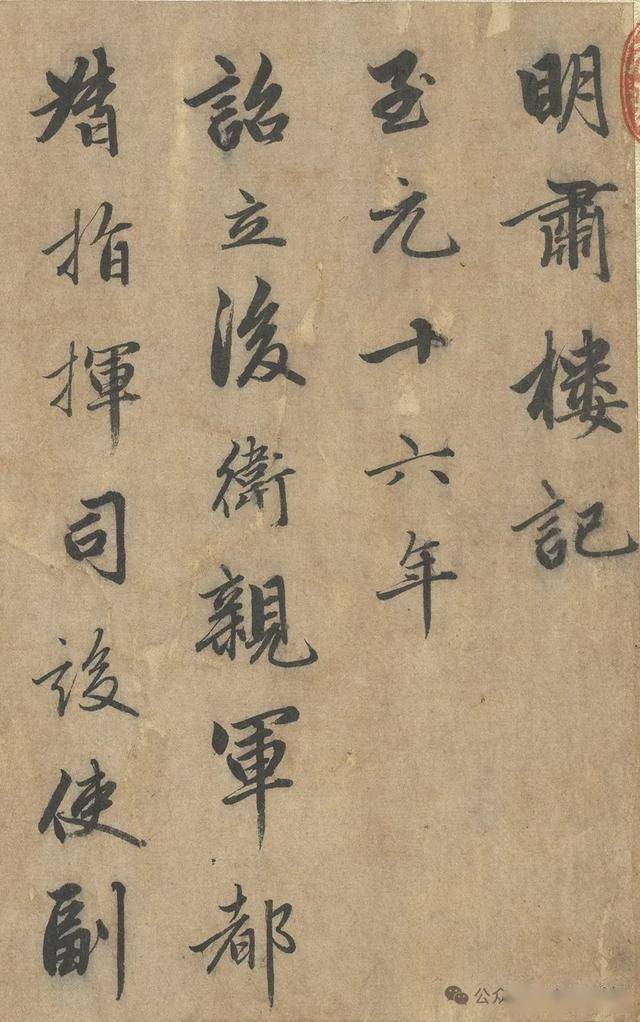 明肅樓記
至元十六年
詔立後衛親軍都
指揮司設使副
公众